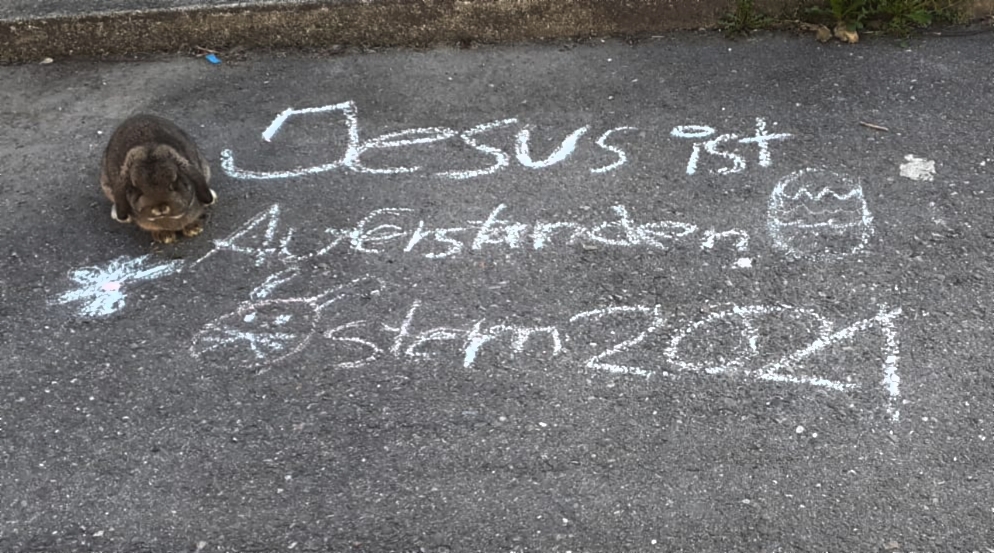 Jesus ist
Auferstanden.
Ostern 2021